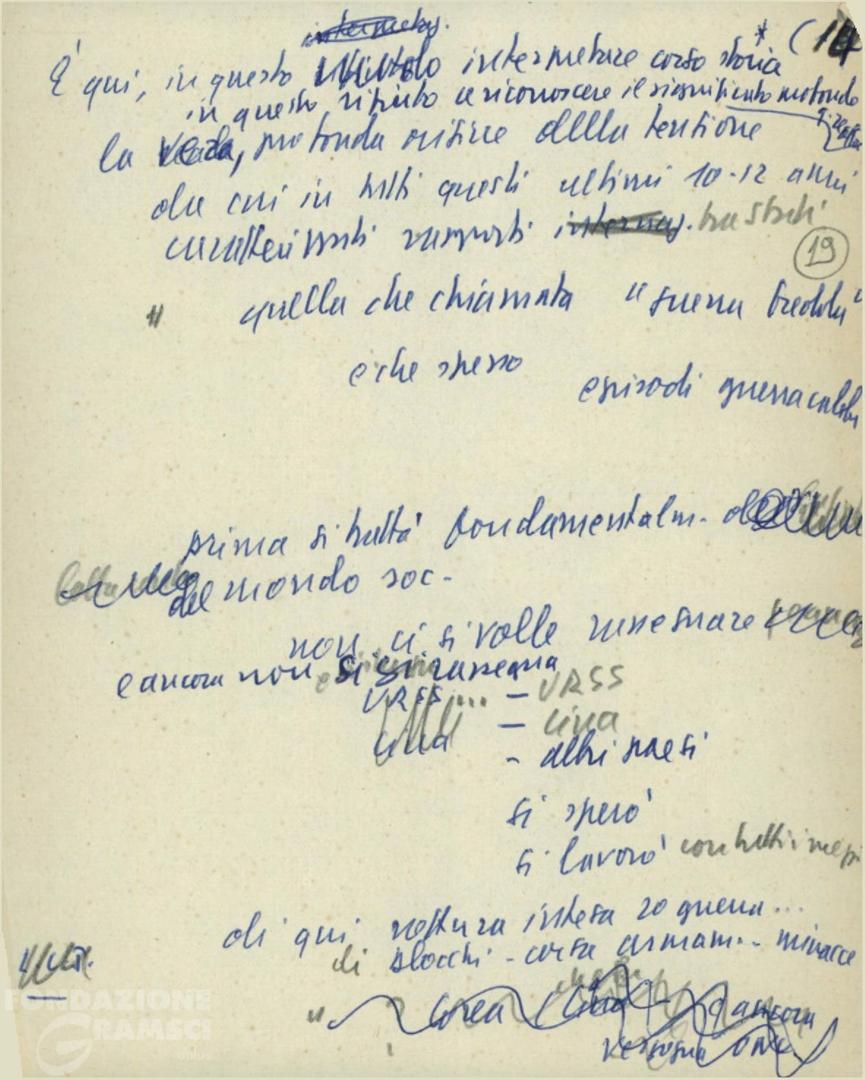 (14
È qui, in questo rifiuto intermetare corso storia *
in questo rifiuto di riconoscere il significato profondo
la vera, profonda origine della tensione
da cui in tutti questi ultimi 10-12 anni
caratterizzati rapporti tra Stati
19
" quella che chiamata "guerra fredda"
e che spesso
episodi guerra calda
prima si trattò fondamentalm.
del mondo soc-
non ci si volle rassegnare
e ancora non ci si rassegna
URSS ... – URSS
Cina – Cina
- altri paesi
si sperò
si lavorò con tutti i mezzi
di qui rottura intesa 2a guerra...
di blocchi - corsa armam.. minacce
" Corea Cina e ancora
vergogna ONU
FONDAZIONE
GRAMSCI